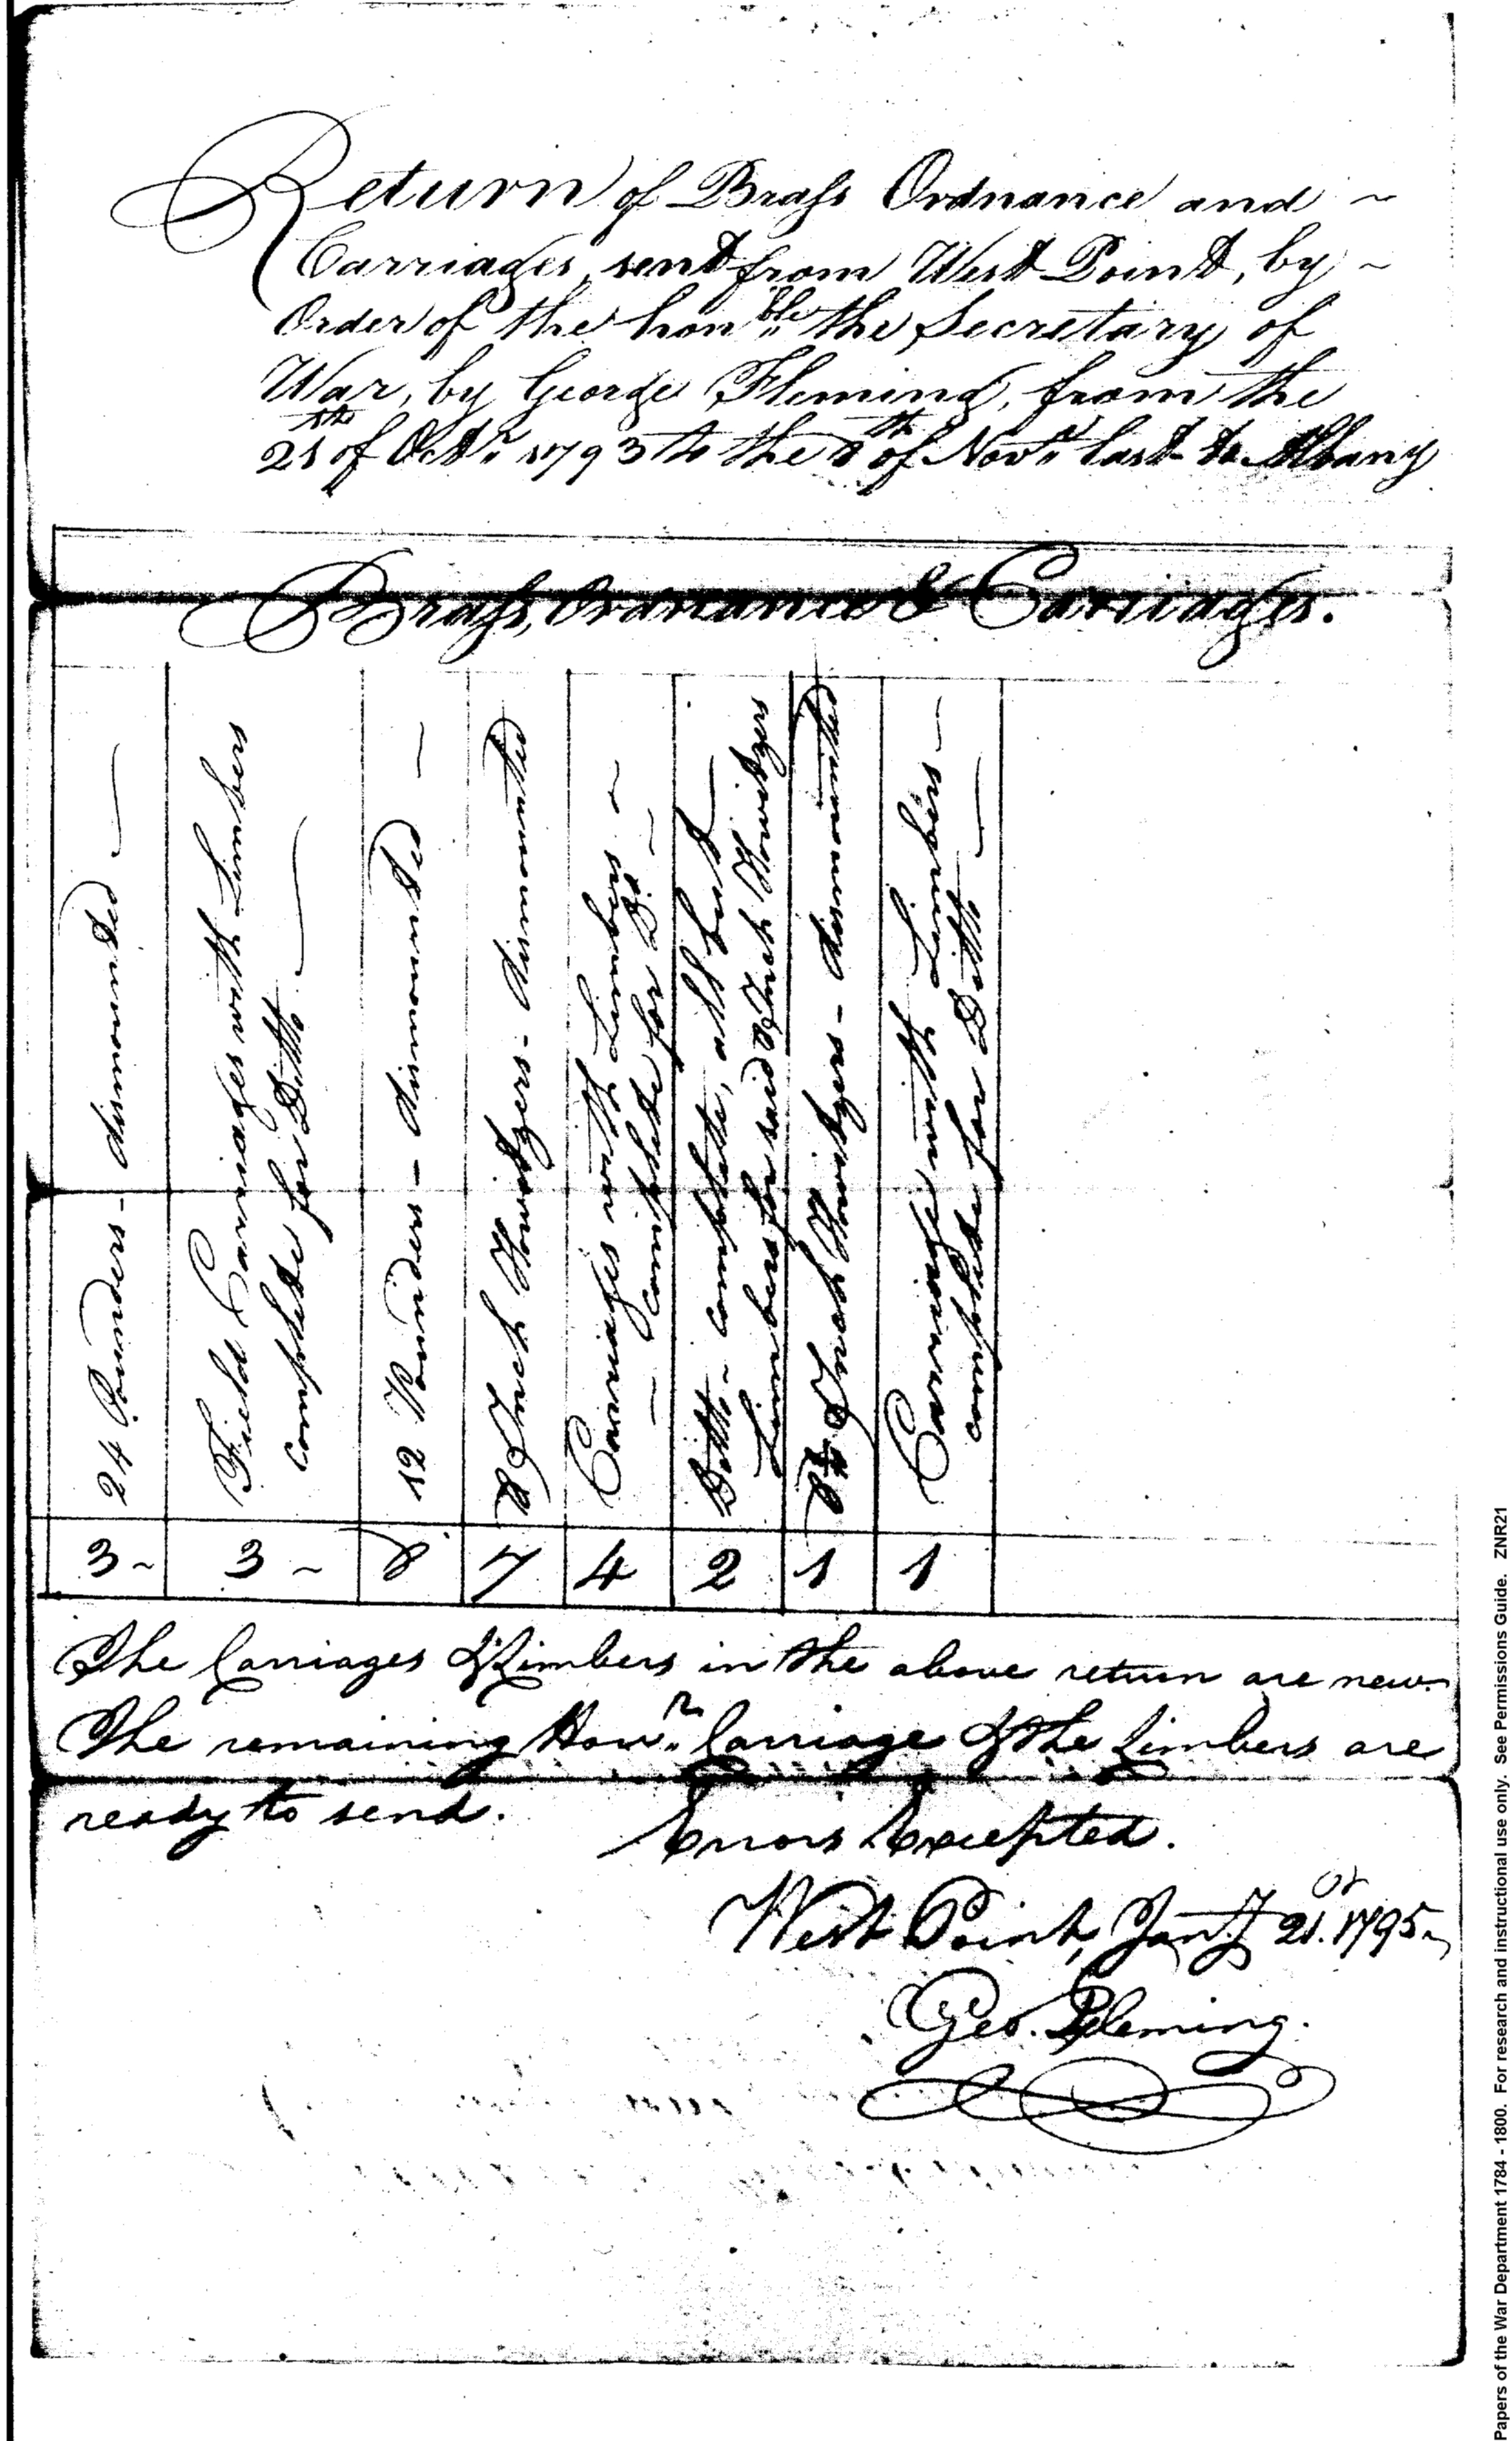 Return of Brass Ordnance and ~
Carriages, sent from West Point, by ~
Order of the hon.ble the Secretary of
War, by George Fleming, from the
21th of Octr. 1793 to the 8th of Novr. last to Albany
Brass, Ordnance & Carriages.
24 Pounders - dismounted —
Field Carriages with Limbers
complete for Ditto. —
12 Pounders - dismounted —
8 Inch Howitzers - dismounted
Carriages with Limbers ~
— complete for Do. ~
Ditto - complete, all but —
Limbers for said 8 Inch Howitzers
Inch Howitzers - dismounted
Carriage with Limbers —
complete for Ditto —
3 ~ 3 ~ 8 7 4 2 1 1
The Carriages & Limbers in the above return are new.
The remaining Howr. Carriage & the Limbers are
ready to send.
Errors Excepted.
West Point, Jany. 21st. 1795 ~
Geo. Fleming.
Papers of the War Department 1784 - 1800. For research and instructional use only. See Permissions Guide. ZNR21